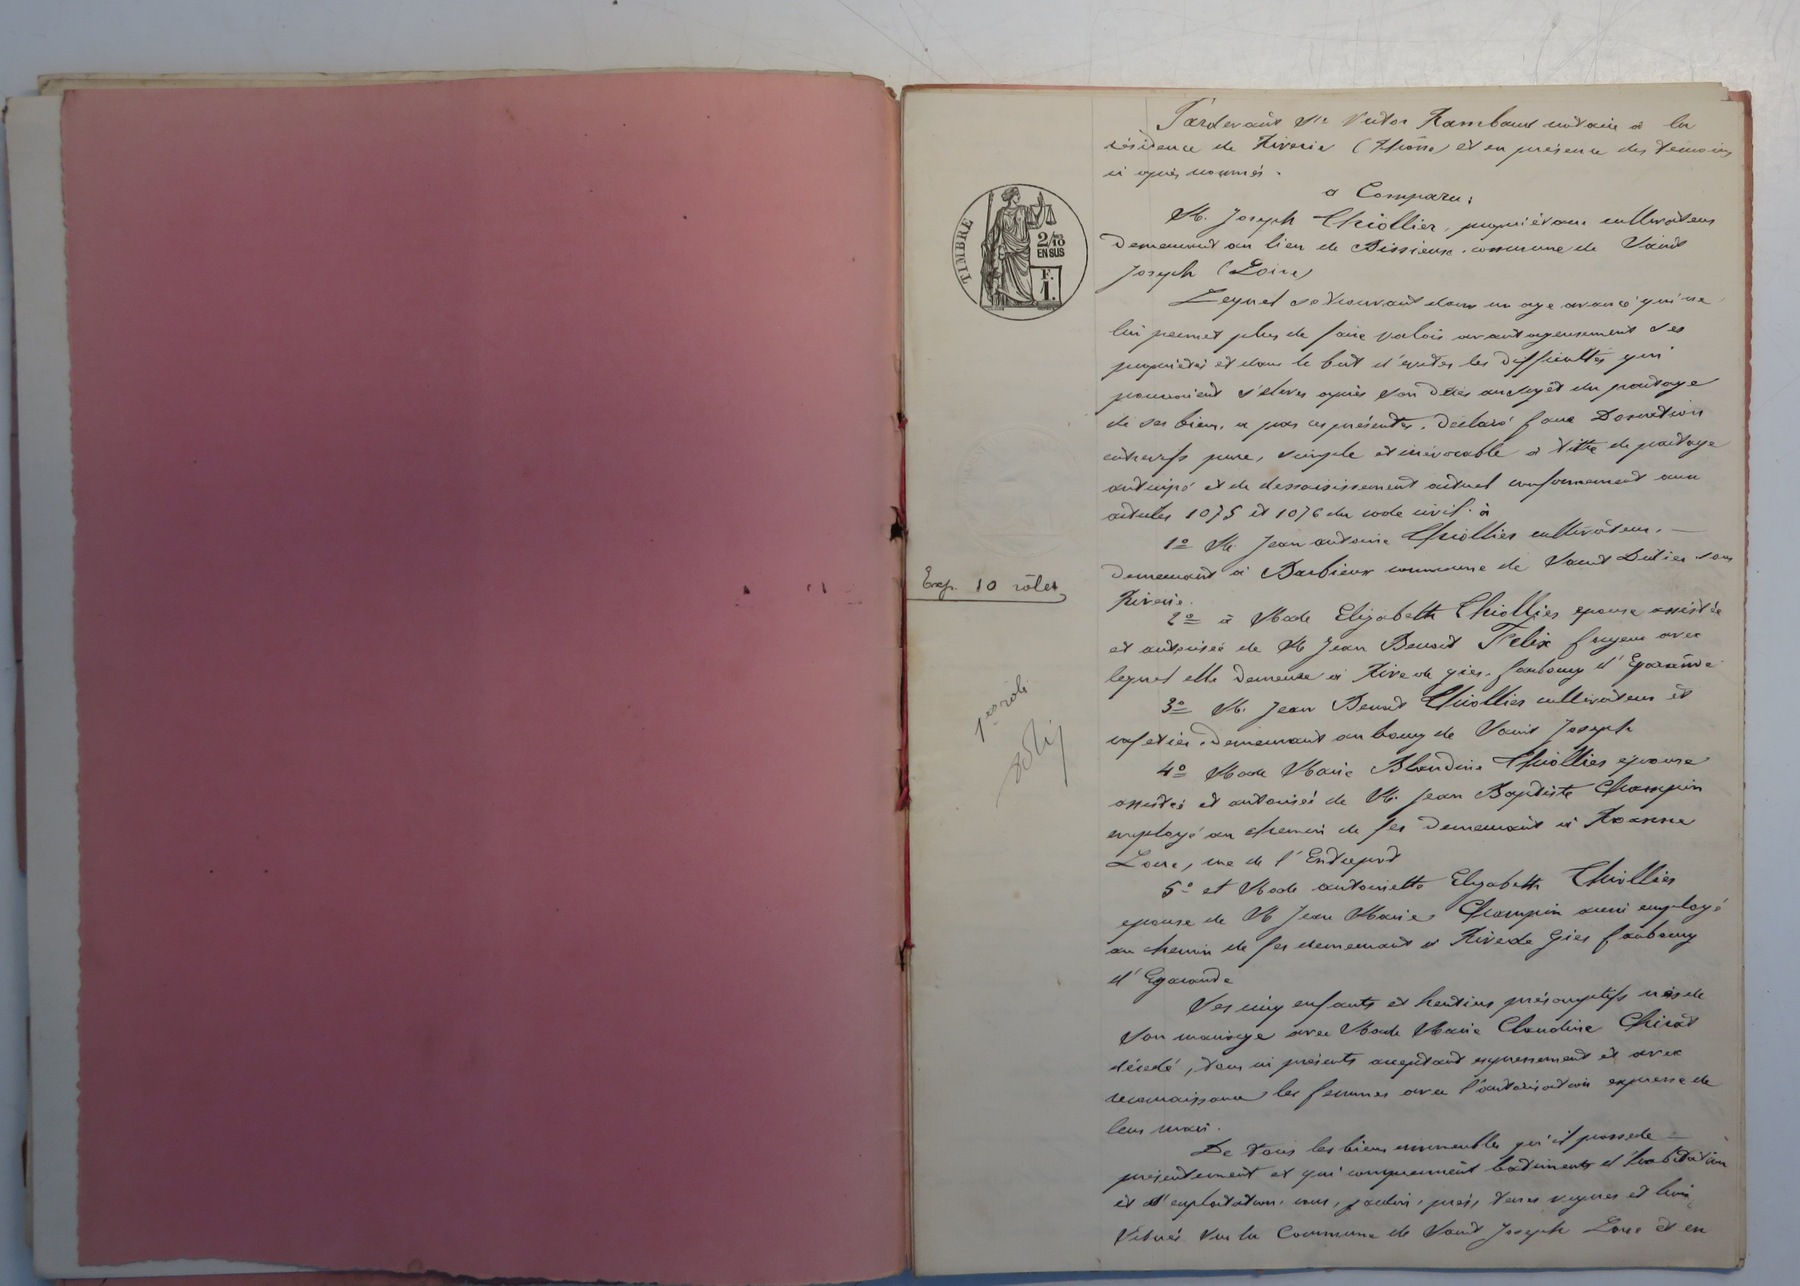 Pardevant Me Victor Rambaud notaire à la
résidence de Riverie (Rhône) et en présence des témoins
ci après nommés.
a Comparu:
M. Joseph Thiollier, propriétaire cultivateur
demeurant au lieu de Bissieux, commune de Saint
Joseph (Loire)
Lequel se trouvant dans un age avancé qui ne
lui permet plus de faire valoir avantageusement ses
propriétés et dans le but d'éviter les difficultés qui
pourraient s'élever après son décès au sujet du partage
de ses biens, a par ces présentes, déclaré faire Donation
entrevifs pure, simple et irrévocable à titre de partage
anticipé et de dessaisissement actuel conformément aux
articles 1075 et 1076 du code civil. à
1º M. Jean antoine Thiollier cultivateur,
demeurant à Barbieux commune de Saint Didier sous
Riverie.
2º à Made Elizabeth Thiollier epouse assistée
et autorisée de M Jean Benoit Felix forgeur avec
lequel elle demeure à Rive de gier, faubourg d'Egarande
3º M. Jean Benoit Thiollier cultivateur et
cafetier, demeurant au bourg de Saint Joseph
4º Made Marie Blandine Thiollier epouse
assistée et autorisée de M. Jean Baptiste Champin
employé au chemin de fer demeurant à Roanne
Loire, rue de l'Entrepot
5º et Made antoinette Elizabeth Thiollier
epouse de M Jean Marie Champin aussi employé
au chemin de fer demeurant à Rive de Gier faubourg
d'Egarande
Ses cinq enfants et héritiers présomptifs nés de
son mariage avec Made Marie Claudine Chirat
décédé, tous ici présents acceptant expressement et avec
reconnaissance les femmes avec l'autorisation expresse de
leur mari.
De tous les biens immeubles qu'il possede
présentement et qui comprennent batiments d'habitation
et d'exploitation, cour, jardin, prés, terres vignes et bois
Situés sur la Commune de Saint Joseph Loire et en
TIMBRE
2/10
EN SUS
F.
1.
Exp. 10 rôles
1er rôle